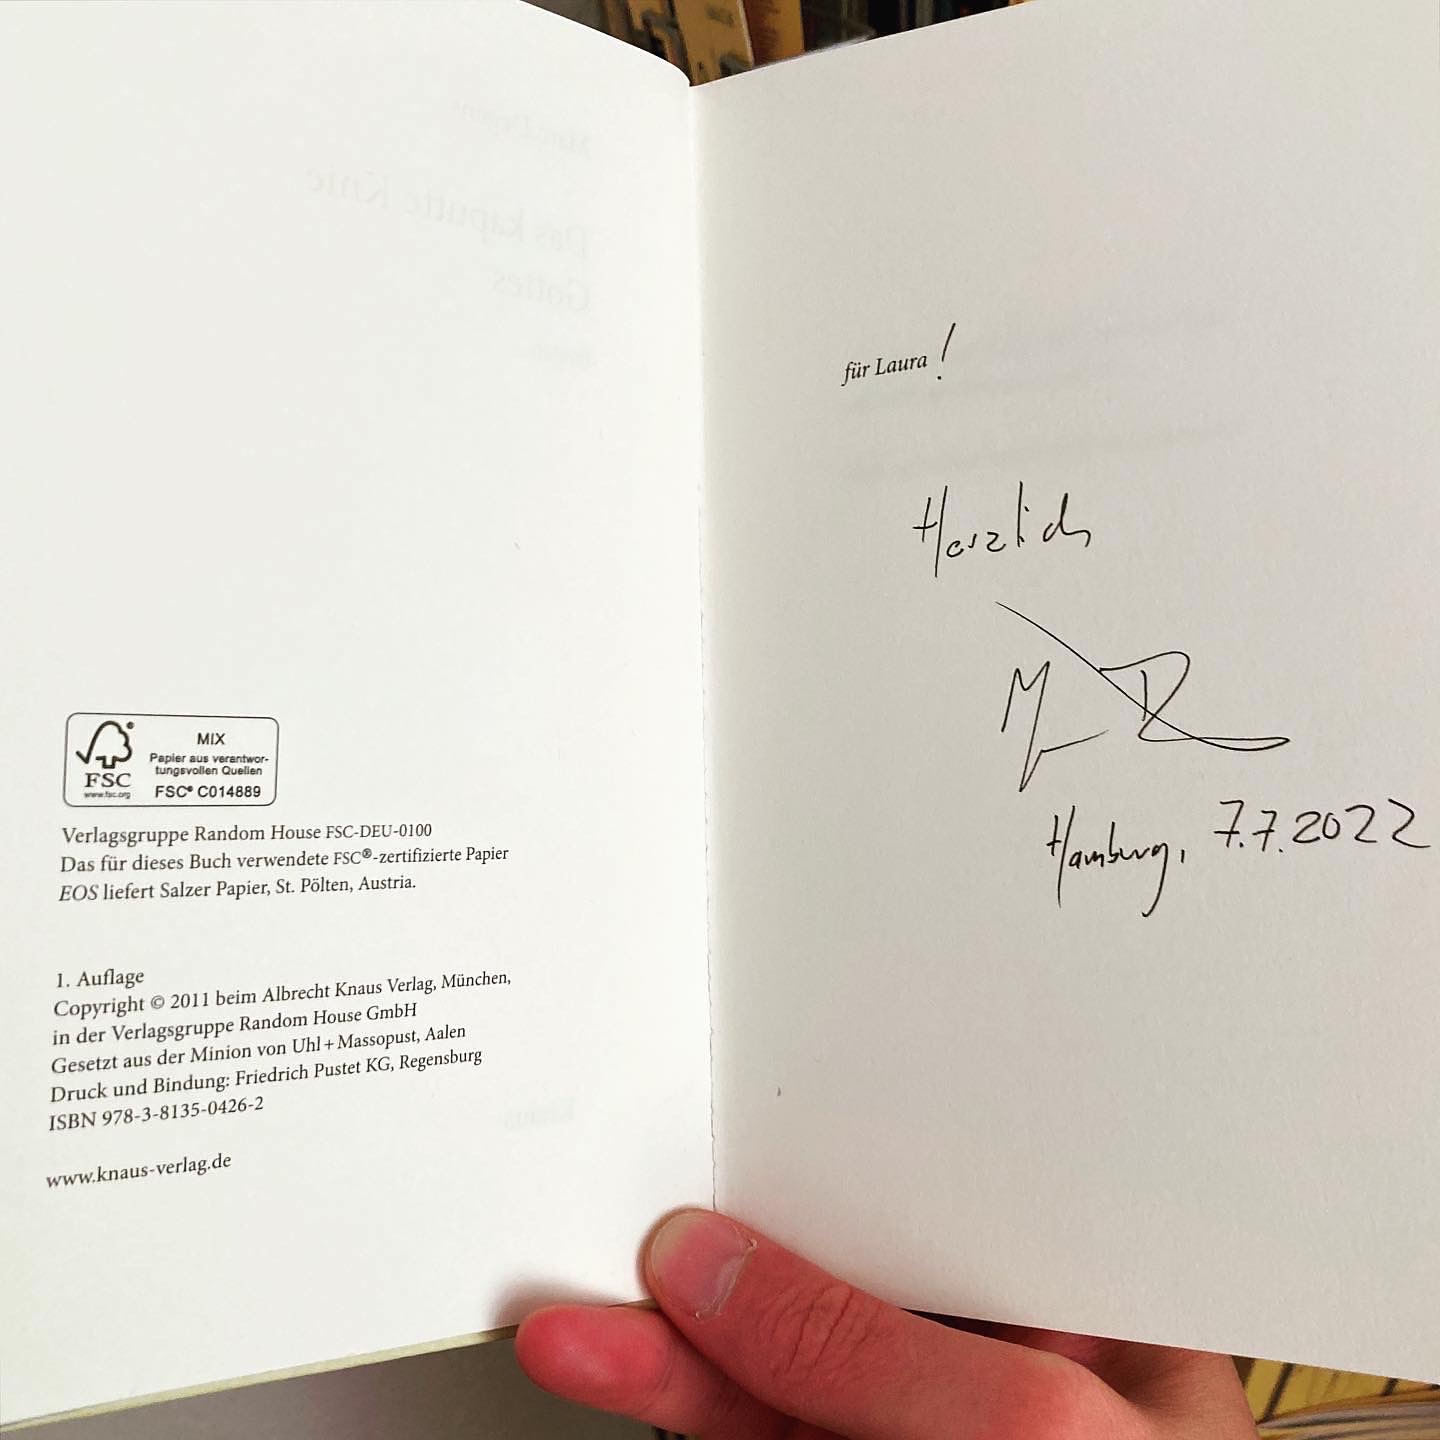 MIX
Papier aus verantwor-
tungsvollen Quellen
FSC® C014889
FSC
www.fsc.org
Verlagsgruppe Random House FSC-DEU-0100
Das für dieses Buch verwendete FSC®-zertifizierte Papier
EOS liefert Salzer Papier, St. Pölten, Austria.
1. Auflage
Copyright © 2011 beim Albrecht Knaus Verlag, München,
in der Verlagsgruppe Random House GmbH
Gesetzt aus der Minion von Uhl + Massopust, Aalen
Druck und Bindung: Friedrich Pustet KG, Regensburg
ISBN 978-3-8135-0426-2
www.knaus-verlag.de
für Laura !
Herzlich
Hamburg, 7.7.2022